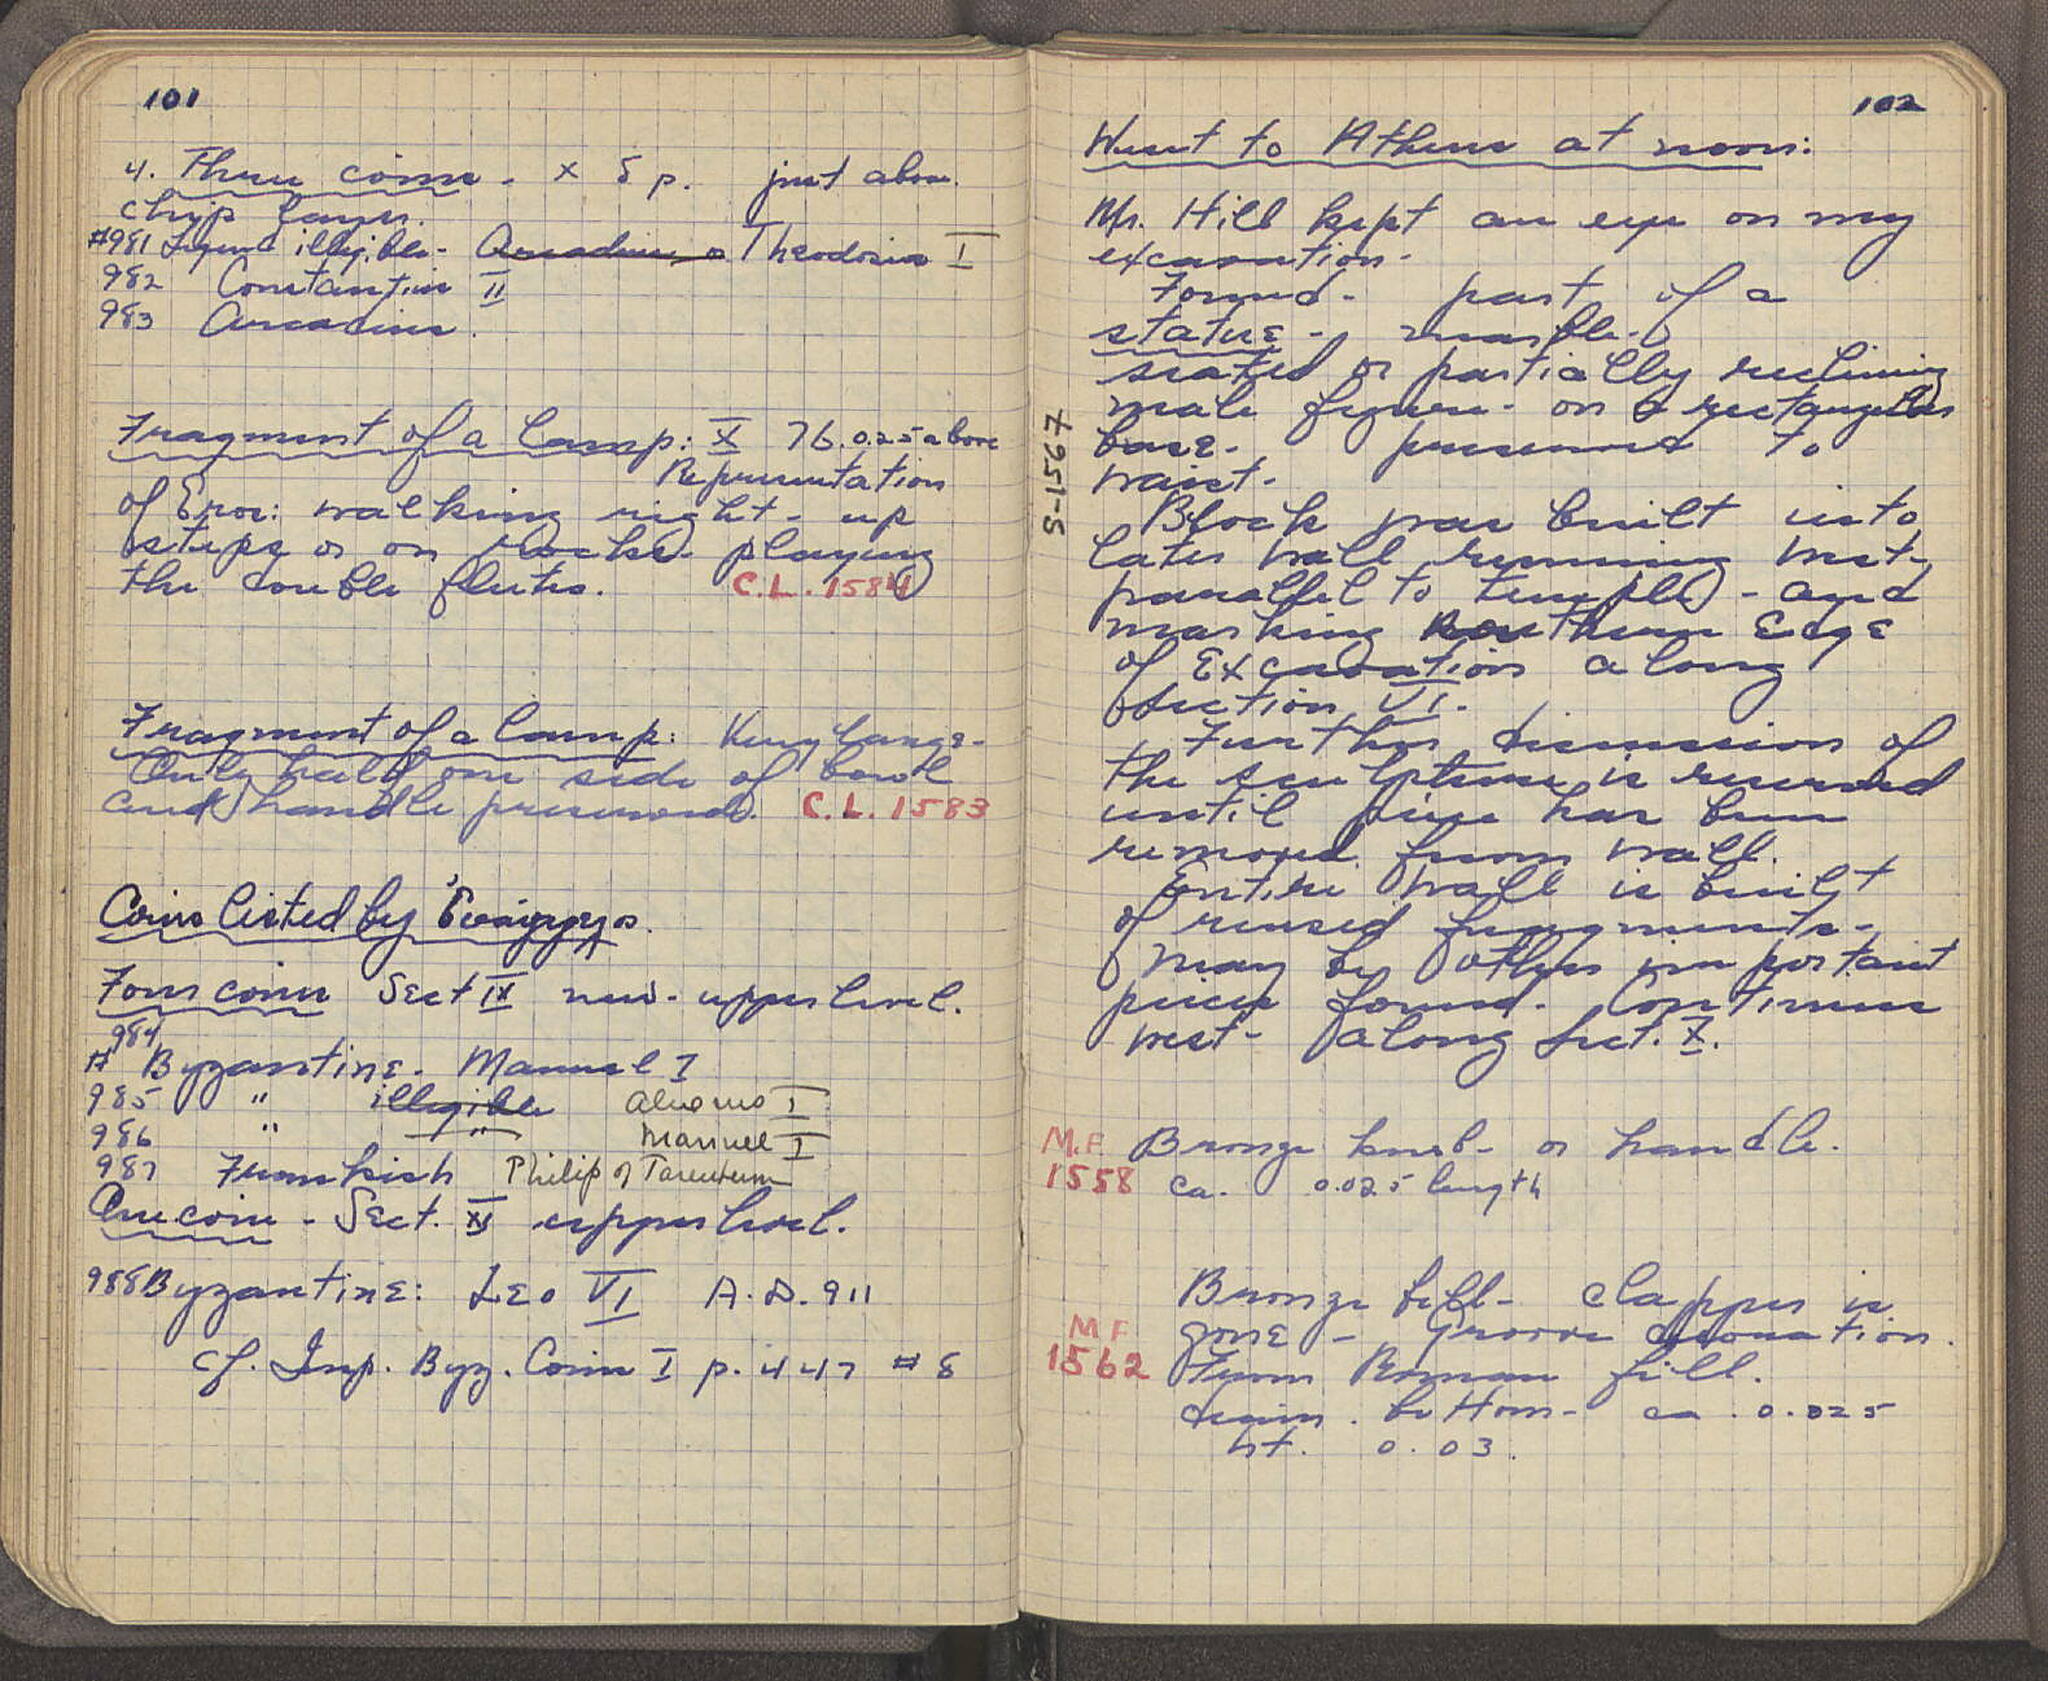 101
4. Three coins - X δ p. just above
chip layer.
#981 Legend illegible - Arcadius or Theodosius I
982 Constantius II
983 Arcadius.
Fragment of a lamp: X 76.025 above
Representation
of Eros: walking right - up
steps or on rocks - playing
the double flutes. C.L. 1584
Fragment of a lamp: Very large -
Only half one side of bowl
and handle preserved. C.L. 1583
Coins listed by Εὐάγγγος.
Four coins Sect IX new - upper level.
984
# Byzantine - Manuel I
985 " illegible Alexius I
986 " " Manuel I
987 Frankish Philip of Tarentum
One coin - Sect. XI upper level.
988 Byzantine: Leo VI A.D. 911
cf. Imp. Byz. Coins I p. 447 #8
102
Went to Athens at noon:
Mr. Hill kept an eye on my
excavation -
Found - part of a
statue - marble -
seated or partially reclining
male figure - on a rectangular
base - preserved to
waist -
S-1567
Block was built into
later wall running west -
parallel to temple - and
marking northern edge
of excavation along
section VI -
Further discussion of
the sculpture is reserved
until piece has been
removed from wall.
Entire wall is built
of reused fragments -
may be other important
pieces found - Continues
west - along Sect. X.
M.F. 1558
Bronze knob - or handle.
ca. 0.025 length
M F 1562
Bronze bell - clapper is
gone - Groove decoration.
From Roman fill.
diam. bottom - ca. 0.025
ht. 0.03.